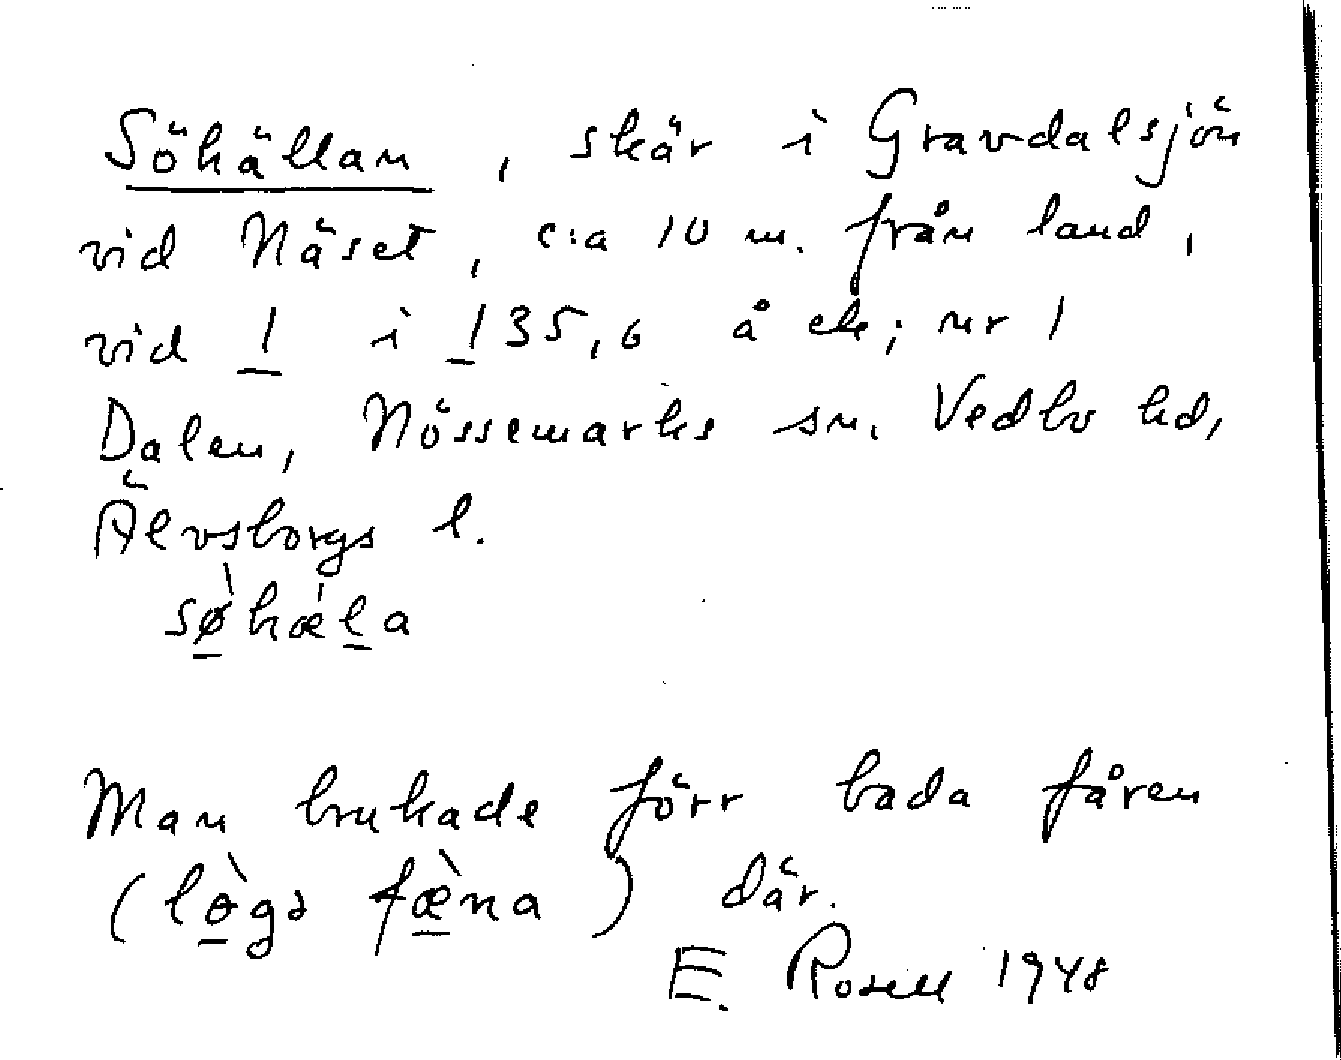 Söhällan, skär i Gravdalsjön
vid Näset, c:a 10 m. från land,
vid 1 i 135,6 å ek; nr 1
Dalen, Nössemarks sn. Vedbo hd,
Älvsborgs l.
sø̀hæ̍la
Man brukade förr bada fåren
(lø̀gə fæ̀na) där.
E. Rosell 1948